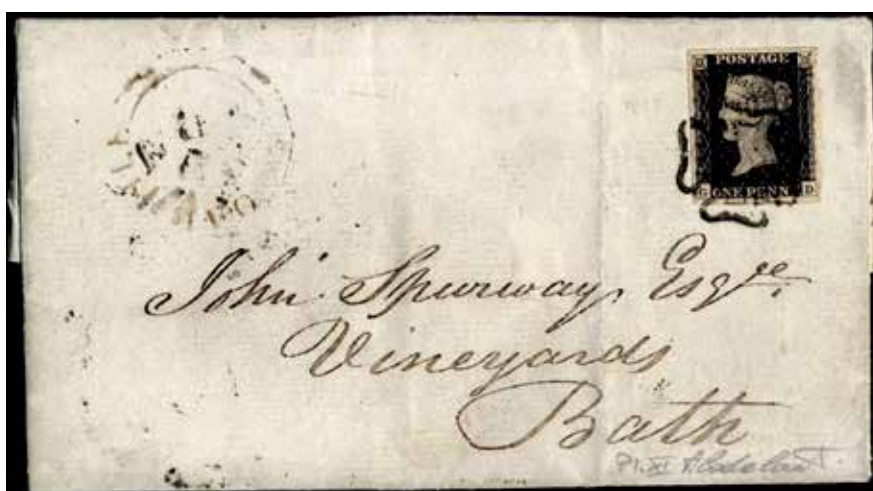 POSTAGE
G ONE PENNY D
John Spurway Esqre.
Vineyards
Bath
Pl. XI